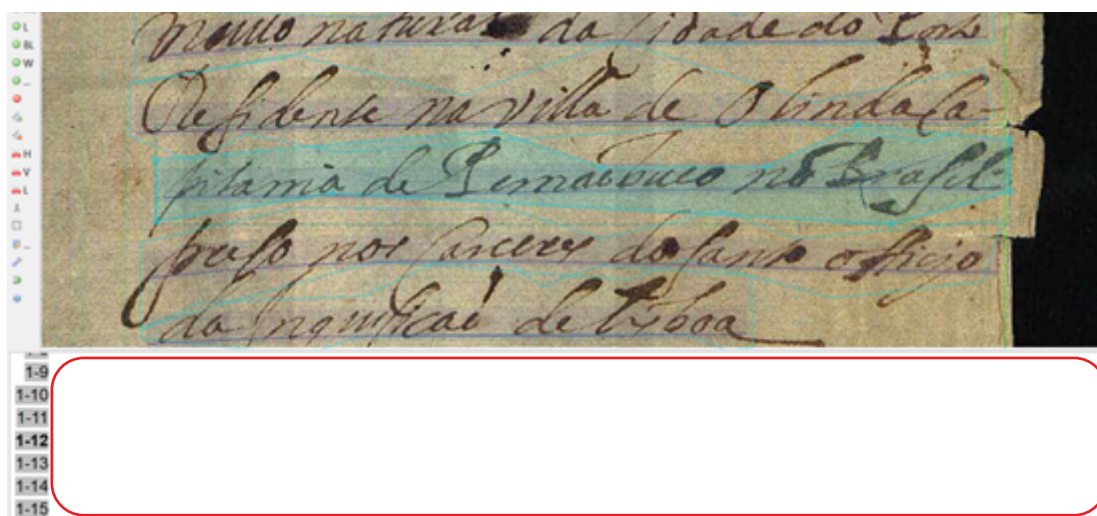 L
BL
W
...
H
V
L
...
natural da Cidade do Porto
Residente na villa de Olinda Ca-
pitania de Pernambuco no Brasil
preso nos Carceres do santo officio
da Inquisicaõ de Lixboa
1-9
1-10
1-11
1-12
1-13
1-14
1-15